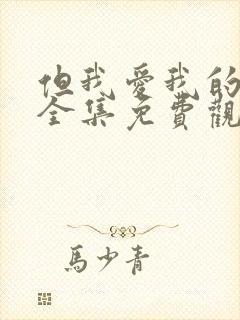 但我愛我的
全集免費觀
馬少青